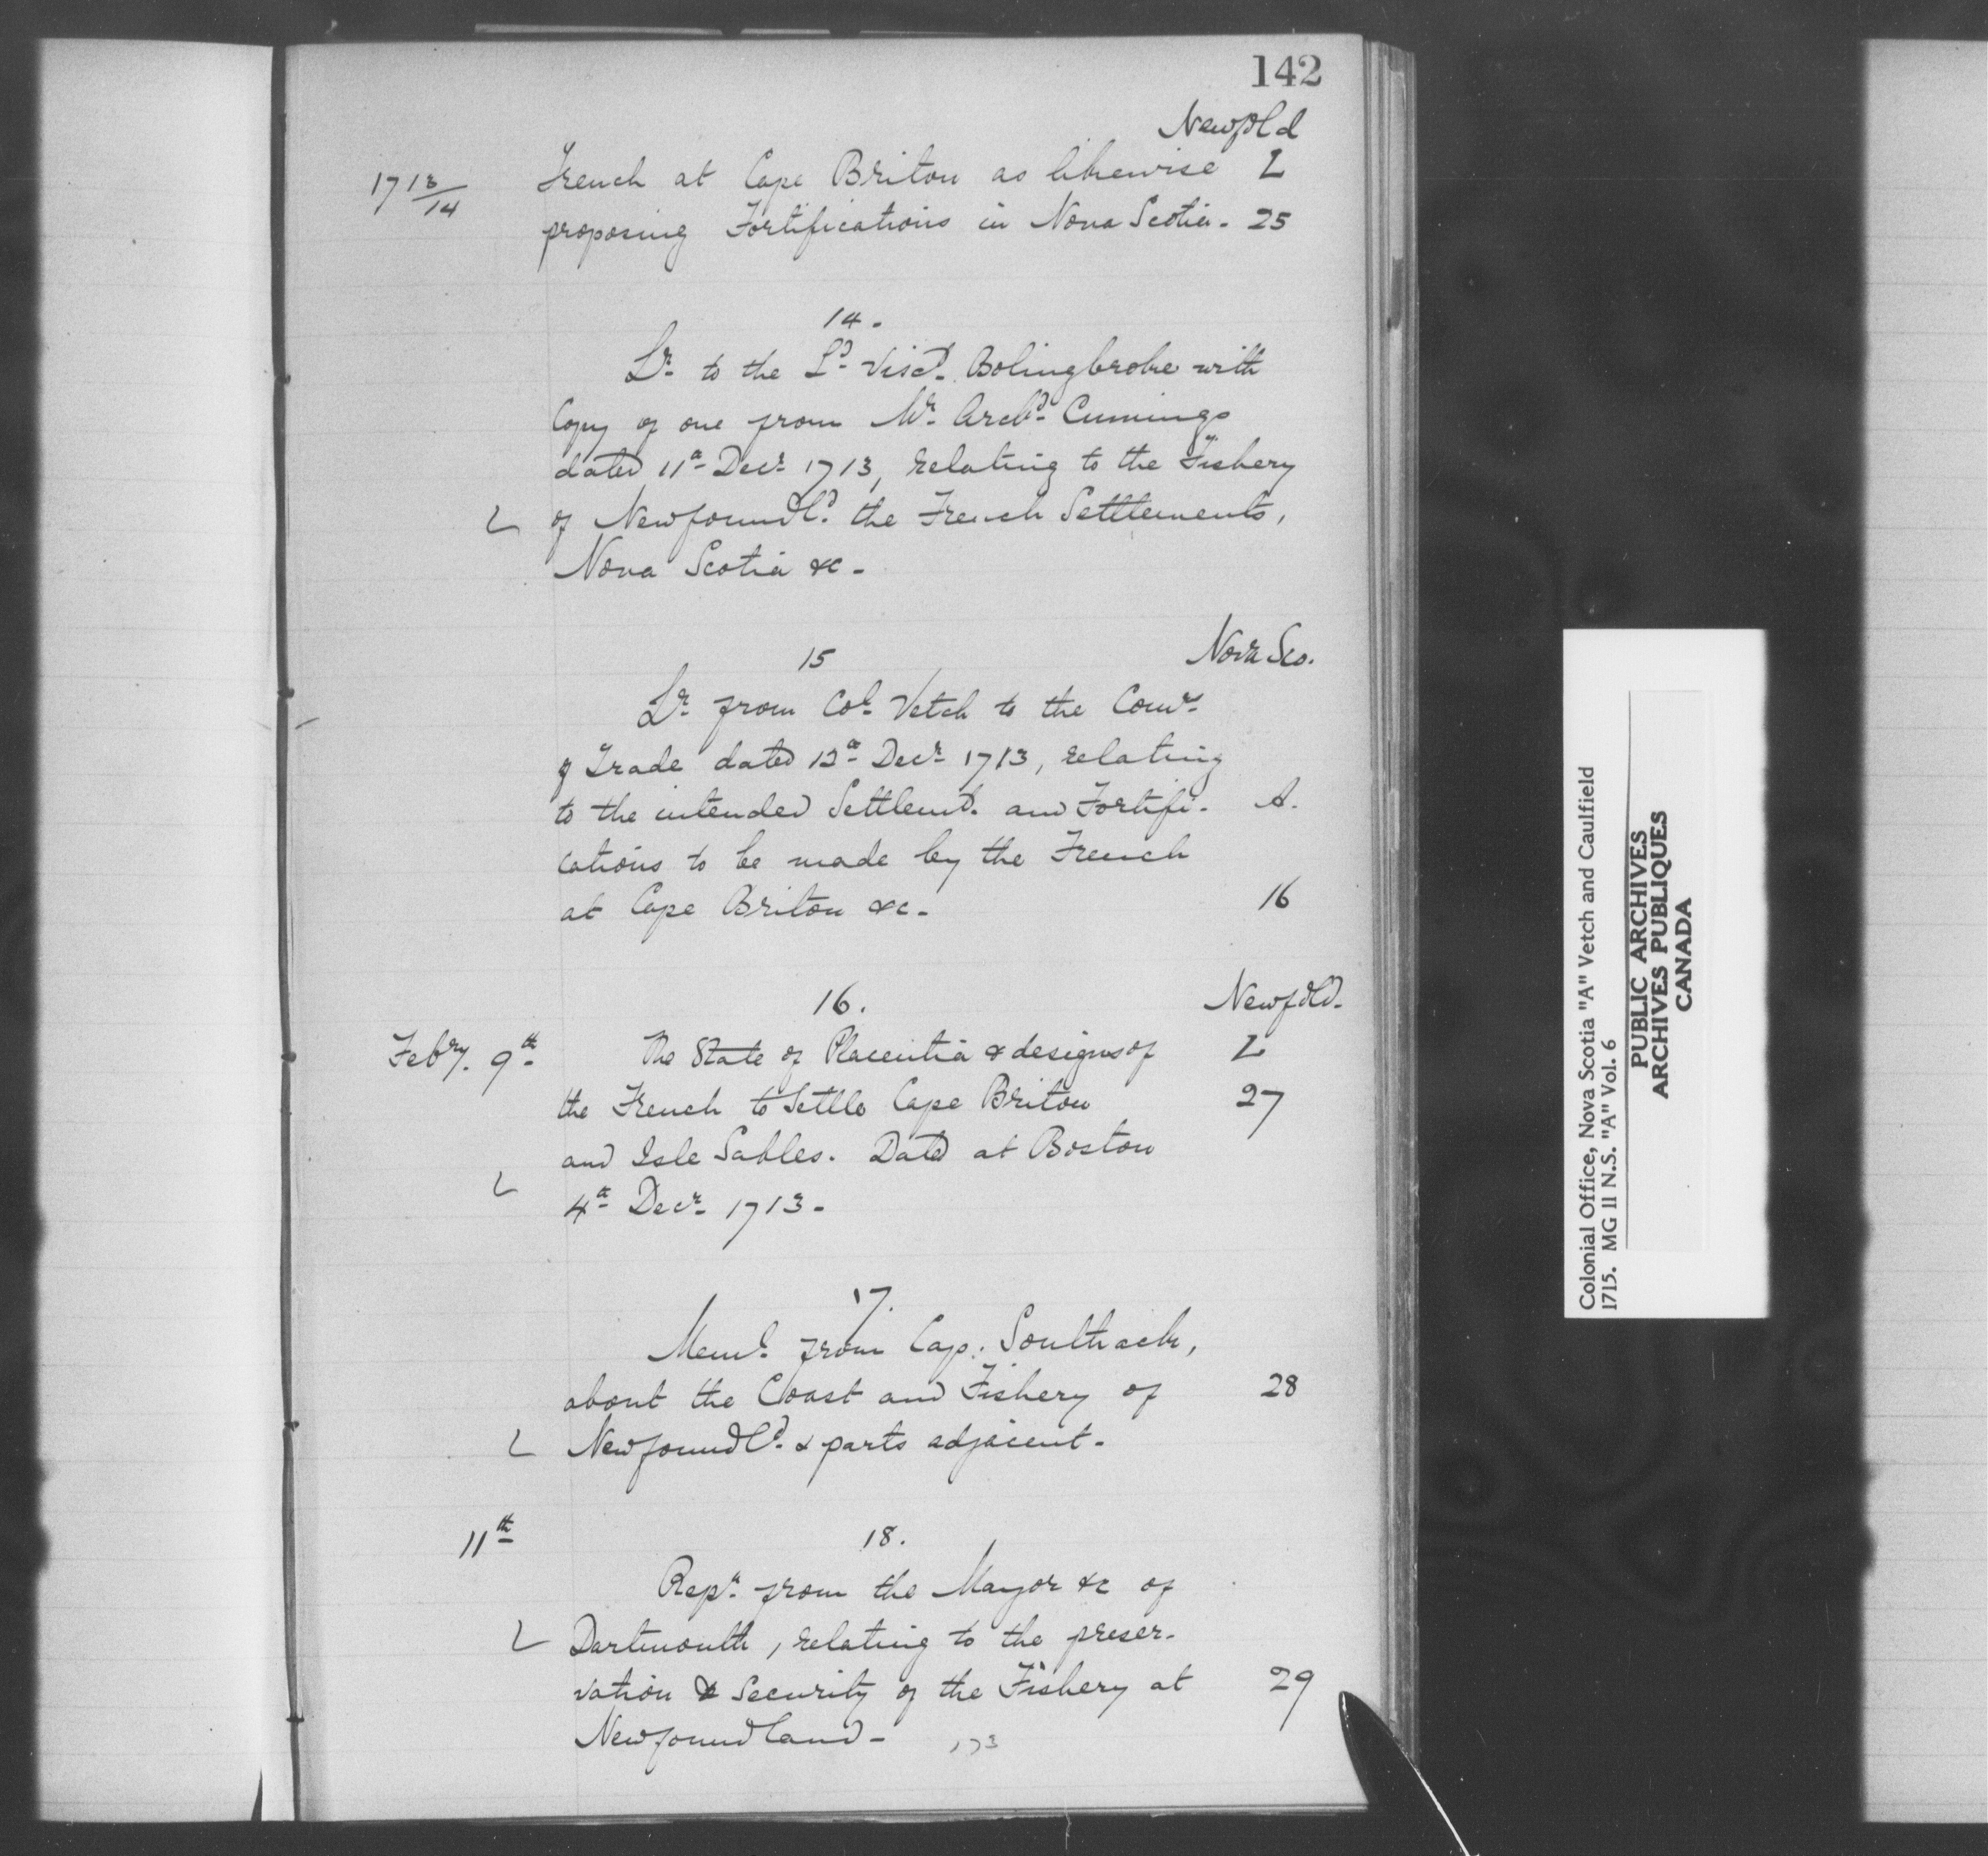 142
Newfld
1713/14 French at Cape Briton as likewise L
proposing Fortifications in Nova Scotia - 25
14.
Lr to the Ld Visct Bolingbroke with
Copy of one from Mr Archd Cummings
dated 11th Decr 1713, relating to the Fishery
L of Newfoundld the French Settlements,
Nova Scotia &c -
15 Nova Sco.
Lr from Col Vetch to the Comrs
of Trade dated 12th Decr 1713, relating
to the intended Settlemt and Fortifi- A.
cations to be made by the French
at Cape Briton &c - 16
16. Newfdld.
Febry. 9th The State of Placentia & designs of L
the French to Settle Cape Briton 27
and Isle Sables. Dated at Boston
L 4th Decr 1713 -
17.
Meml from Cap. Southack,
about the Coast and Fishery of 28
L Newfoundld & parts adjacent -
11th 18.
Repn from the Mayor &c of
L Dartmouth, relating to the preser-
vation & Security of the Fishery at 29
Newfoundland - 173
Colonial Office, Nova Scotia "A" Vetch and Caulfield
1715. MG II N.S. "A" Vol. 6
PUBLIC ARCHIVES
ARCHIVES PUBLIQUES
CANADA